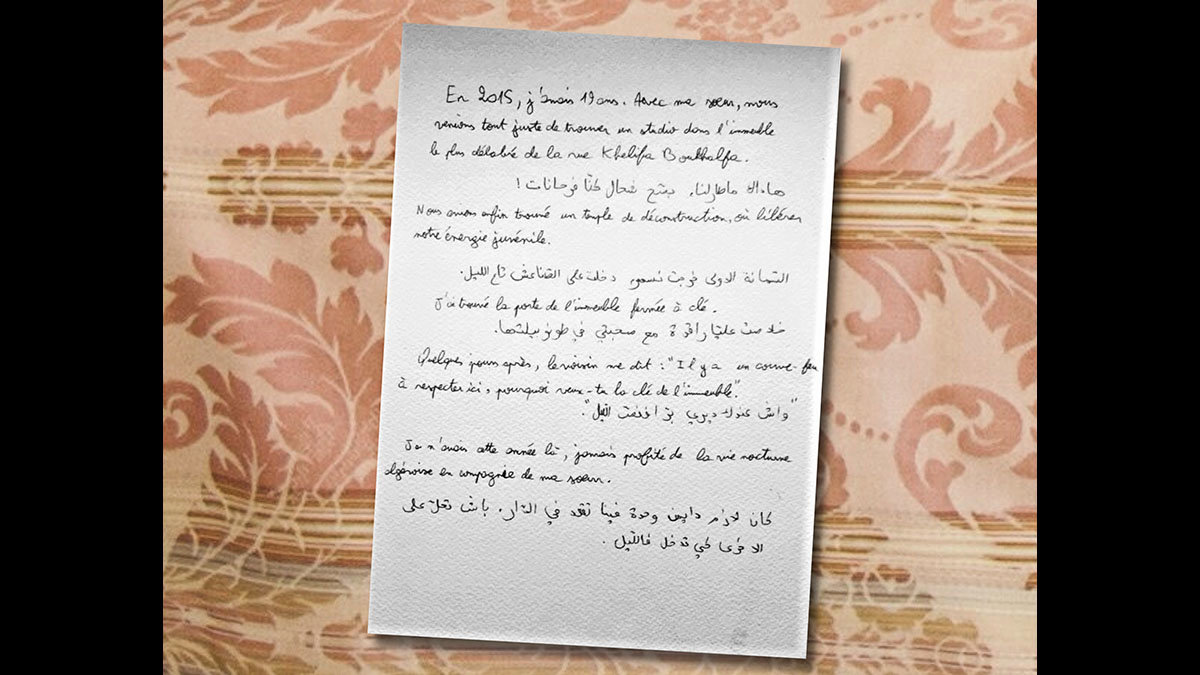 En 2015, j'avais 19 ans. Avec ma sœur, nous
venions tout juste de trouver un studio dans l'immeuble
le plus délabré de la rue Khelifa Boukhalfa.
شحال كنّا فرحانات !
Nous avions enfin trouvé un temple de déconstruction, où libérer
notre énergie juvénile.
السمانة الاولى خرجت نسهر، دخلت على الطناعش تاع الليل.
J'ai trouvé la porte de l'immeuble fermée à clé.
مع صحبتي في طونوبيلتها.
Quelques jours après, le voisin me dit : "Il y a un couvre-feu
à respecter ici, pourquoi veux-tu la clé de l'immeuble".
"واش عندك ديري برّا في الليل".
Je n'avais cette année là, jamais profité de la vie nocturne
algéroise en compagnie de ma sœur.
كان لازم دايمن وحدة فينا تقعد في الدّار، باش تحلّ على
الاخرى كي تدخل فالليل.